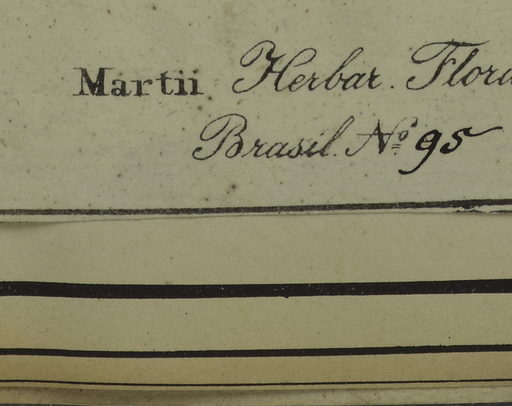 Martii Herbar. Flora
Brasil. Nº 95